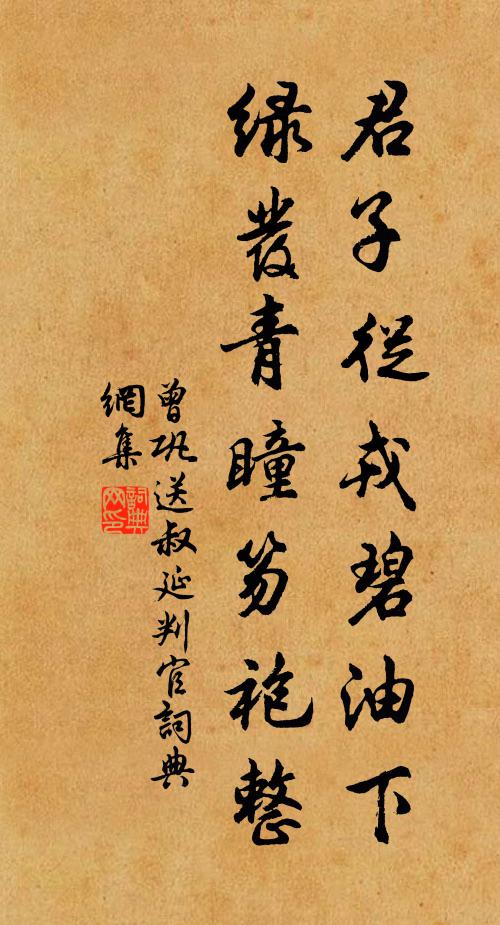 君子從戎碧油下
綠發青瞳笏袍整
曾巩送叔延判官詞典
網集
詞典网印